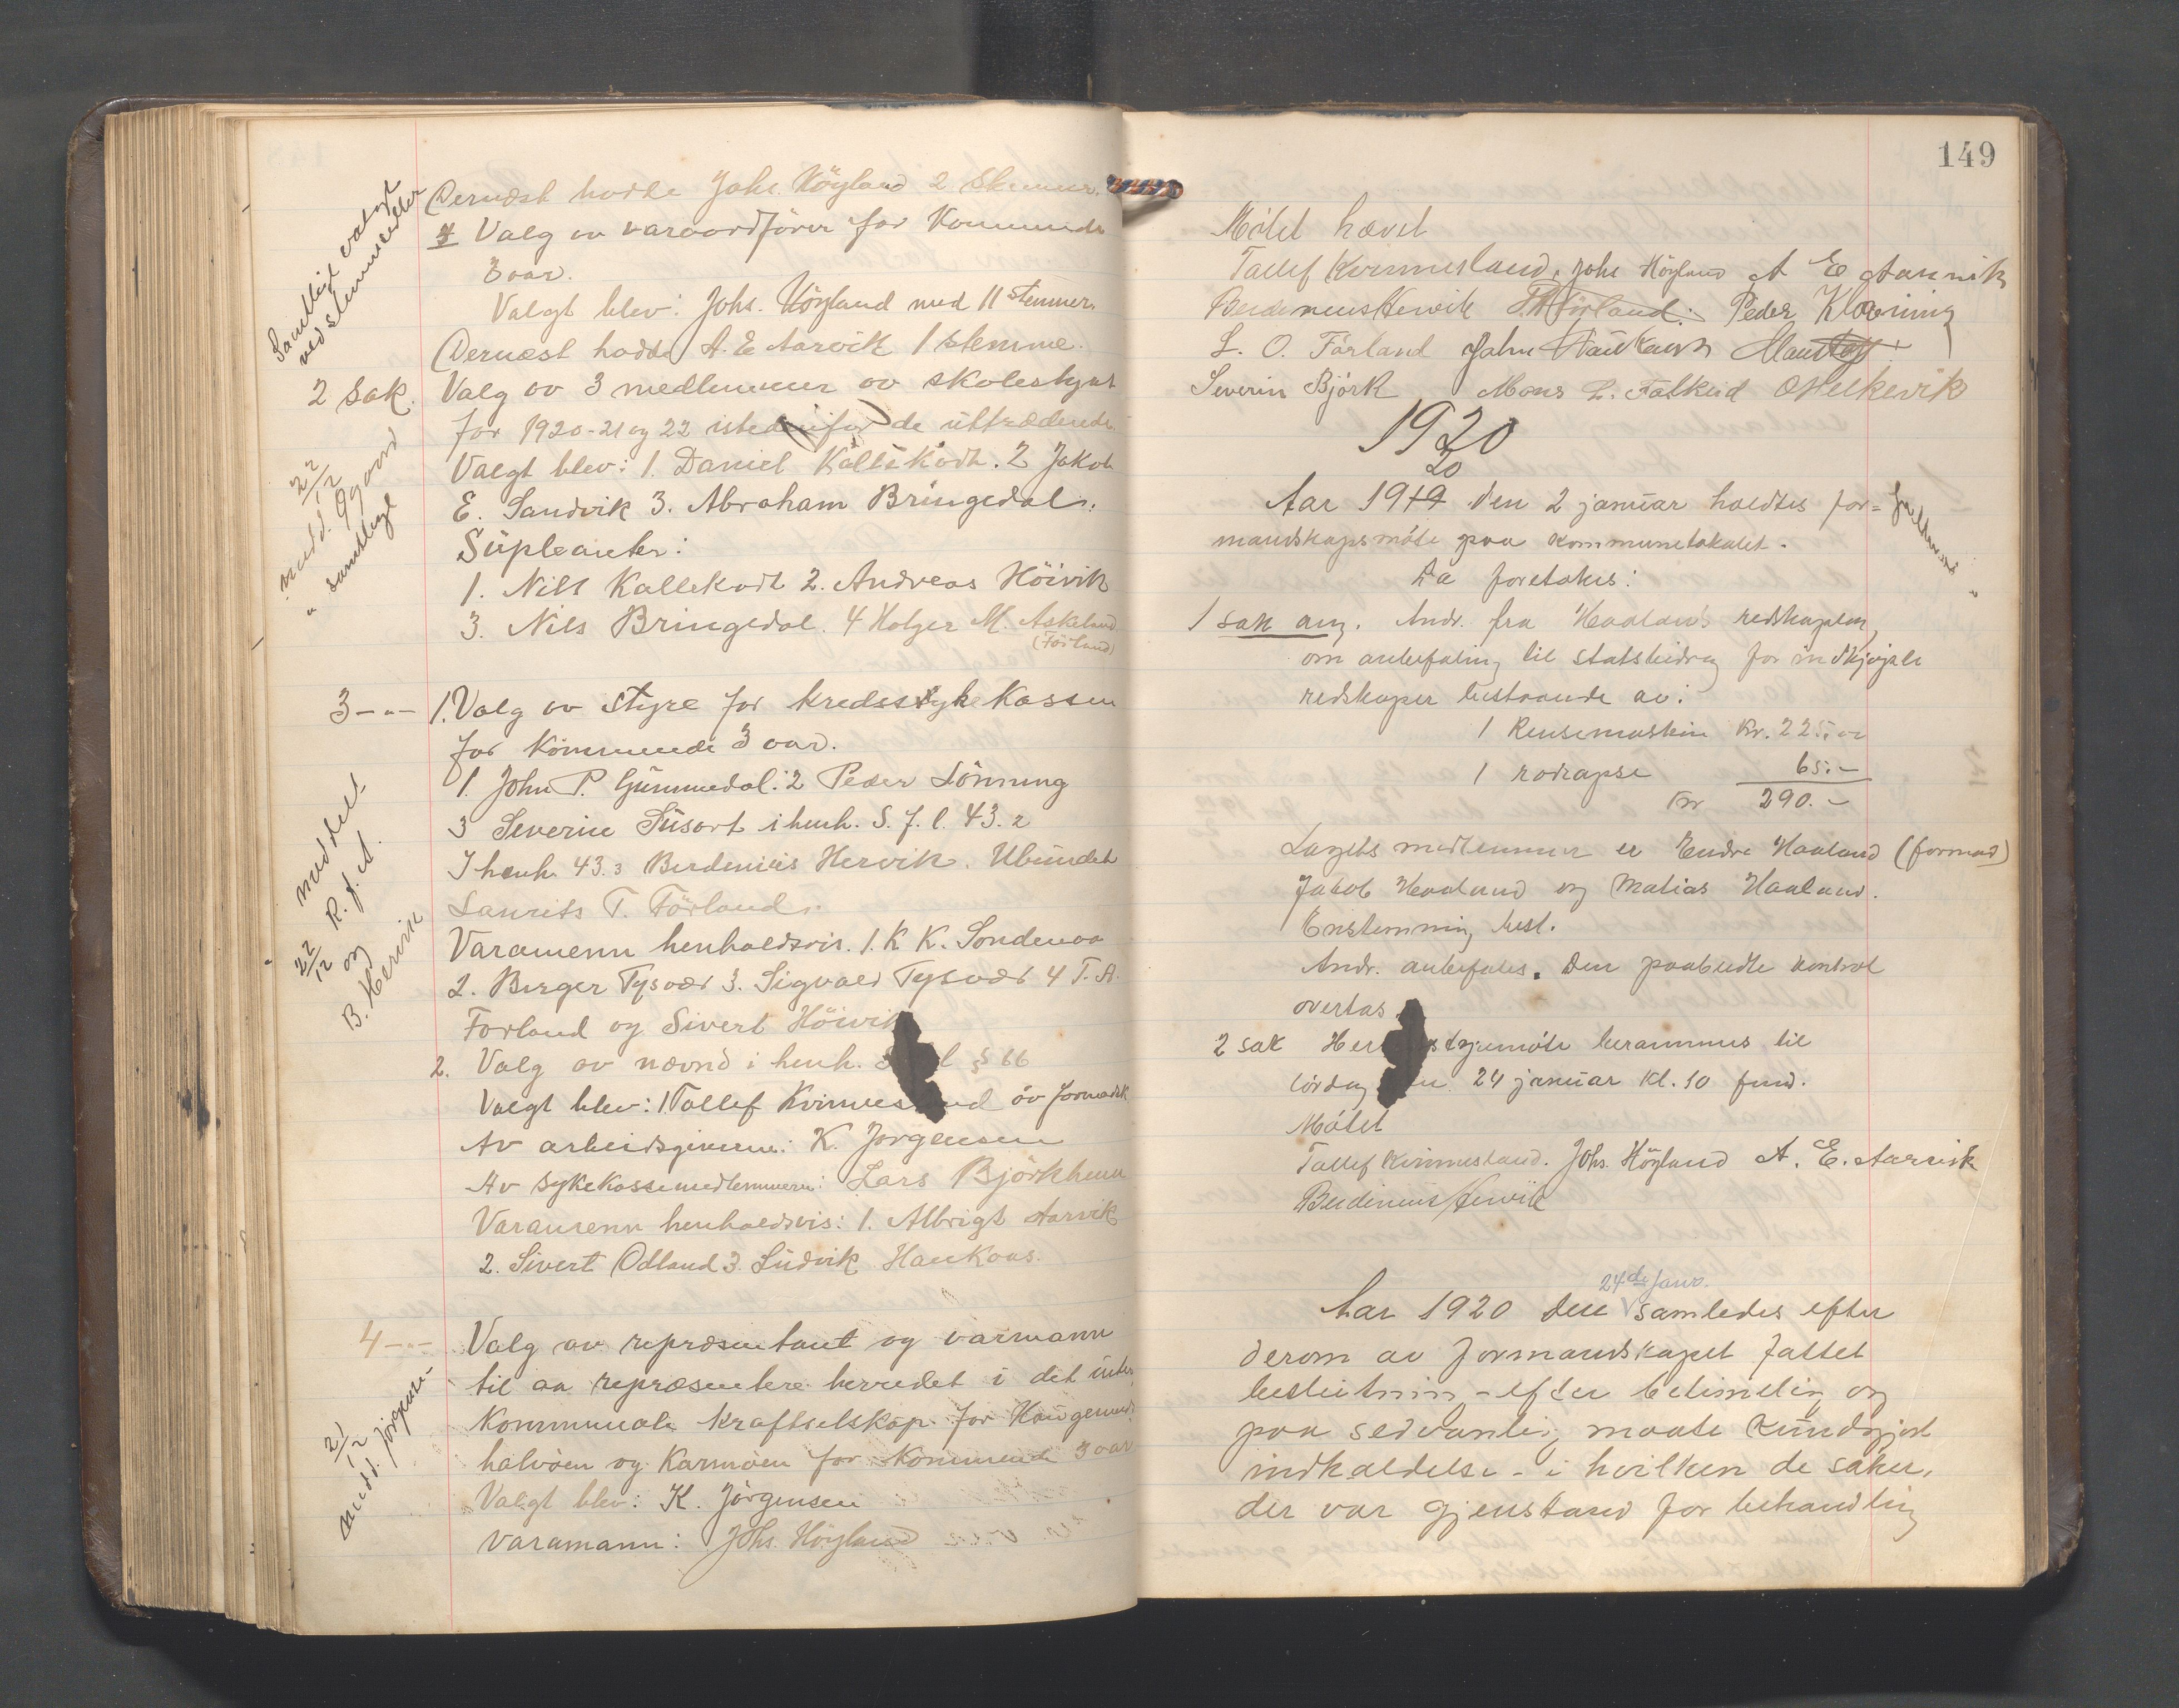 Dernæst hadde Johs. Höyland 2 stemmer.
Valg av varaordförer for Kommende
3 aar.
Valgt blev: Johs. Höyland med 11 stemmer.
Dernæst hadde A. E Aarvik 1 stemme.
Samtlige valgt
ved stemmesedler
2 Sak. Valg av 3 medlemmer av skolestyret
for 1920-21 og 22 istedenfor de uttrædende.
Valgt blev: 1. Daniel Kallekodt. 2 Jakob
E. Sandvik 3. Abraham Bringedal.
Supleanter:
1. Nils Kallekodt 2. Andreas Höivik
3. Nils Bringedal. 4 Holger M. Askeland
(Förland)
22/12
samtlige
3-"- 1. Valg av styre for kredssykekassen
for kommende 3 aar.
1. John P. Gummedal: 2 Peder Lönning
3 Severin Susort i henh. S. f. l. 43.2
I henh. 43.3 Berdinius Hervik. Ubundet
Laurits T. Förland.
Varamenn henholdsvis. 1. K K. Sondenaa
2. Birger Tysvær 3. Sigvald Tysvær 4 T. A.
Forland og Sivert Höivik
meddelt
22/12 R. f. A.
og
B. Hervik
2. Valg av nævnd i henh. S l § 66
Valgt blev: 1 Tallef Kvinnesland av formandsk
Av arbeidsgiverne: K. Jorgensen
Av sykekassemedlemmerne: Lars Björkhem
Varamenn henholdsvis: 1. Albrigt Aarvik
2. Sivert Odland 3. Ludvik Haukaas.
4-"- Valg av repræsentant og varmann
til aa repræsentere herredet i det inter
kommunale kraftselskap for Haugesund
halvöen og Karmöen for kommende 3 aar
Valgt blev: K. Jörgensen
varamann: Johs. Höyland
2/12
medd. Jörgensen
149
Mötet hævet
Tallef Kvinnesland, Johs Höyland A E Aarvik
Berdinius Hervik Th Förland. Peder Klovning
L. O. Förland John Haukaas
Severin Björk Mons L. Falkeid O Helkevik
1920
20
Aar 1919 den 2 januar holdtes for=
mandskapsmöte paa kommunelokalet.
fuldmand
Da foretokes:
1 sak ang. Andr. fra Haalands redskapslag,
om anbefaling til statsbidrag for indkjöpte
redskaper bestaaende av:
1 Rensemaskin Kr. 225.00
1 rotrapse 65.-
Kr 290.-
Lagets medlemmer er Endre Haaland (formand)
Jakob Haaland og Matias Haaland.
Enstemmig best.
Andr. anbefales. Den paabudte kontrol
overtas.
2 sak Herredsstyremöte berammes til
lördag den 24 januar kl. 10 fmd.
Mötet
Tallef Kvinnesland. Johs. Höyland A. E. Aarvik
Berdinius Hervik
24de Janr.
Aar 1920 den samledes efter
derom av formandskapet fattet
beslutning - efter betimelig og
paa sedvanlig maate kundgjort
indkaldelse - i hvilken de saker,
der var gjenstand for behandling